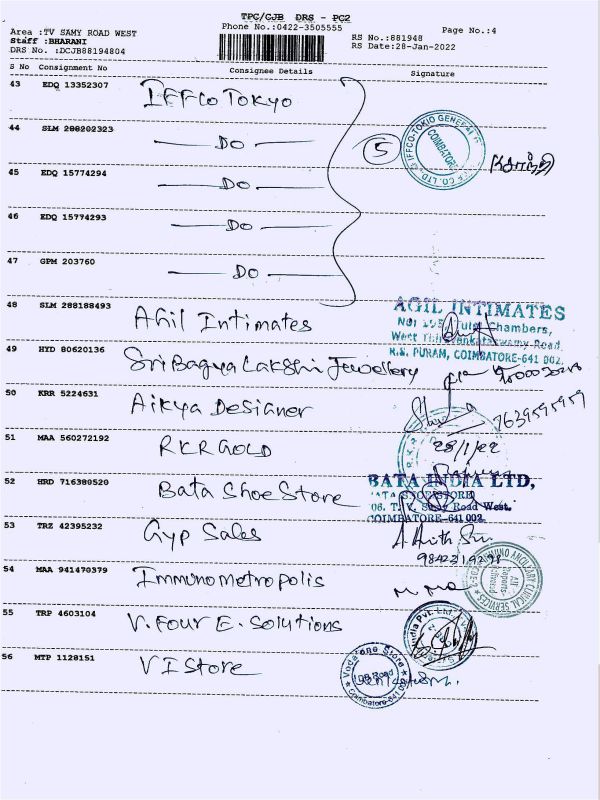 TPC/CJB DRS - PC2
Area :TV SAMY ROAD WEST
Phone No.:0422-3505555
Page No.:4
Staff :BHARANI
RS No.:881948
DRS No. :DCJB88194804
RS Date:28-Jan-2022
S No Consignment No Consignee Details Signature
43 EDQ 13352307 IFFCo Tokyo
44 SLM 288202323 — Do —
5
IFFCO-TOKIO GENERAL
COIMBATORE
45 EDQ 15774294 — Do —
46 EDQ 15774293 — Do —
47 GPM 203760 — Do —
48 SLM 288188493 Ahil Intimates
AGIL INTIMATES
Chambers,
R.S. PURAM, COIMBATORE-641 002.
49 HYD 80620136 Sri Bagya Lakshi Jewellery
50 KRR 5224631 Aikya Designer
7639595959
51 MAA 560272192 RKR GOLD
28/1/22
52 HRD 716380520 Bata Shoe Store
BATA INDIA LTD,
Road West.
COIMBATORE-641 002.
53 TRZ 42395232 Gyp Sales
54 MAA 941470379 Immunometropolis
ANCILLARY CLINICAL SERVICES
55 TRP 4603104 V. Four E. Solutions
India Pvt. Ltd
56 MTP 1128151 VI Store
Vodafone Store
Coimbatore-641 002